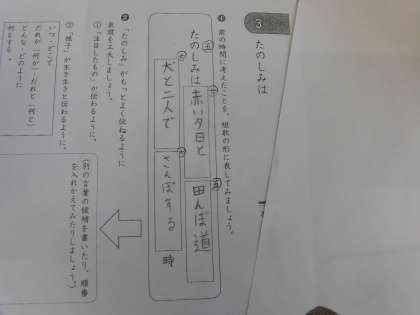 3 たのしみは
❹ 前の時間に考えたことを、短歌の形に表してみましょう。
五 七 五
たのしみは 赤い夕日と 田んぼ道
七 七
犬と二人で さんぽする 時
❺ 「たのしみ」がもっとよく伝わるように
表現を工夫しましょう。
① 「注目したもの」が伝わるように。
② 「様子」が生き生きと伝わるように。
いつ・どこで
だれが(何が)・だれと(何と)
どんな・どのように
何をする。
(別の言葉の候補を書いたり、順番
を入れかえてみたりしましょう。)